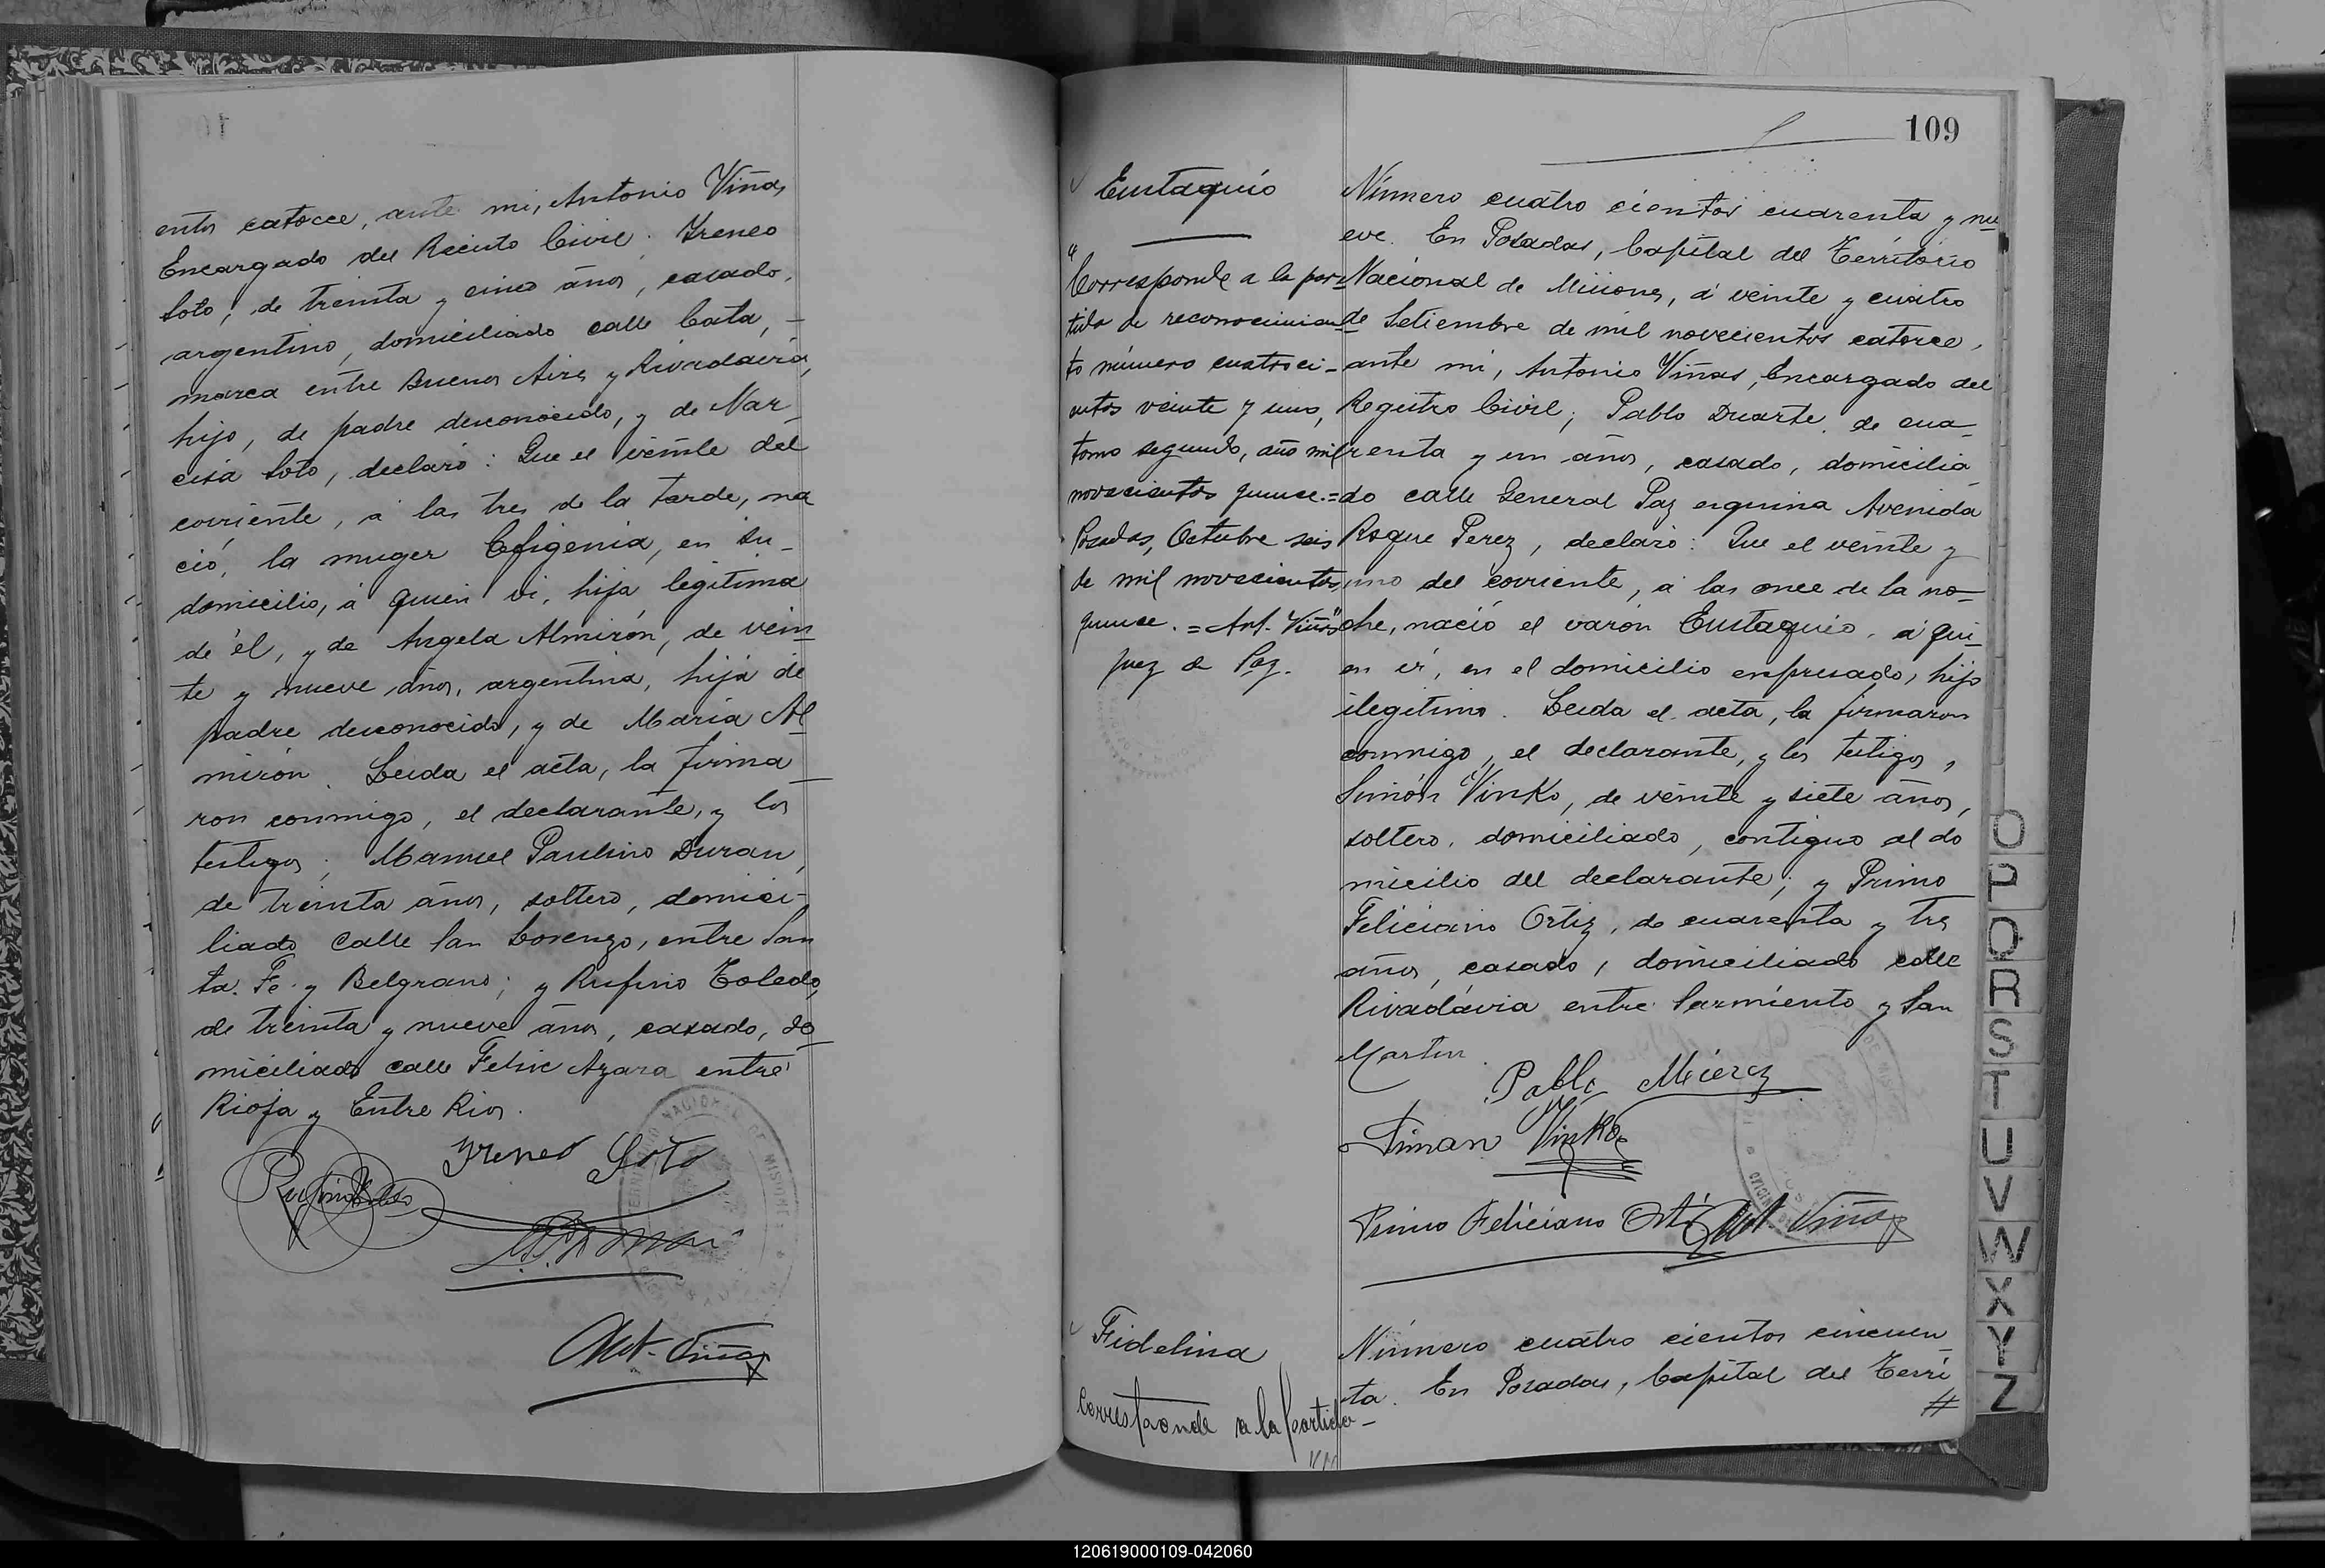 entos catorce, ante mi, Antonio Viñas,
Encargado del Reciuto Civil; Yreneo
Soto, de treinta y cinco años, casado,
argentino, domiciliado calle Cata,-
marca entre Buenos Aires y Rivadavia,
hijo, de padre desconocido, y de Nar
cisa Soto, declaró: Que el veinte del
corriente, á las tres de la tarde, na
ció, la muger Efigenia, en su-
domicilio, á quien vi, hija legitima
de él, y de Angela Almirón, de vein
te y nueve años, argentina, hija de
padre desconocido, y de Maria Al
mirón. Leida el acta, la firma
ron conmigo, el declarante, y los
testigos; Manuel Paulino Duran,
de treinta años, soltero, domici-
liado Calle San Lorenzo, entre San
ta. Fe y Belgrano; y Rufino Toledo,
de treinta y nueve años, casado, do
miciliado calle Felix Azara entre
Rioja y Entre Rios.
Yreneo Soto
Ant. Viñas
109
Eustaquio
"Corresponde a la par-
tida de reconocimien-
to número cuatroci-
entos veinte y uno,
tomo segundo, año mil
novecientos quince.=
Posadas, Octubre seis
de mil novecientos
quince.=Ant. Viñas"
Juez de Paz.
Número cuatro cientos cuarenta y nu
eve. En Posadas, Capital del Territorio
Nacional de Misiones, á veinte y cuatro
de Setiembre de mil novecientos catorce,
ante mi, Antonio Viñas, Encargado del
Registro Civil; Pablo Duarte, de cua-
renta y un años, casado, domicilia
do calle General Paz esquina Avenida
Roque Perez, declaró: Que el veinte y
uno del corriente, á las once de la no-
che, nació el varón Eustaquio, á qui-
en vi, en el domicilio expresado, hijo
ilegitimo. Leida el acta, la firmaron
conmigo, el declarante, y los testigos,
Simón Vinko, de veinte y siete años,
soltero, domiciliado, contiguo al do
micilio del declarante; y Primo
Feliciano Ortiz, de cuarenta y tres
años, casado, domiciliado calle
Rivadávia entre Sarmiento y San
Martin.
Pablo Mierez
Siman Vinko
Primo Feliciano Ortiz Ant. Viñas
Fidelina
Corresponde a la partida-
Número cuatro cientos cincuen
ta. En Posadas, Capital del Terri
#
O
P
Q
R
S
T
U
V
W
X
Y
Z
120619000109-042060